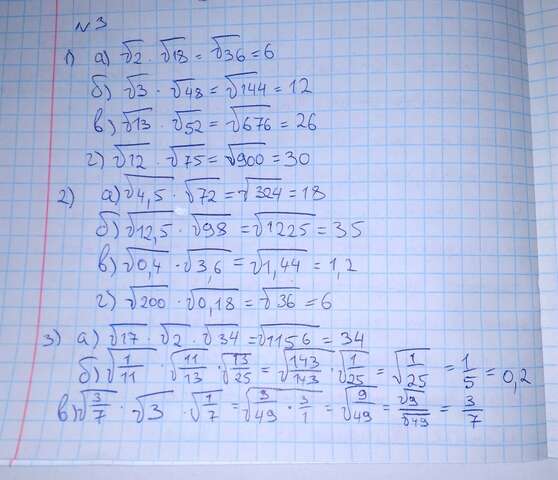 №3
1) а) √2 · √18 = √36 = 6
б) √3 · √48 = √144 = 12
в) √13 · √52 = √676 = 26
г) √12 · √75 = √900 = 30
2) а) √4,5 · √72 = √324 = 18
б) √12,5 · √98 = √1225 = 35
в) √0,4 · √3,6 = √1,44 = 1,2
г) √200 · √0,18 = √36 = 6
3) а) √17 · √2 · √34 = √1156 = 34
б) √1/11 · √11/13 · √13/25 = √143/143 · √1/25 = √1/25 = 1/5 = 0,2
в) √3/7 · √3 · √1/7 = √3/49 · 3/1 = √9/49 = √9/√49 = 3/7